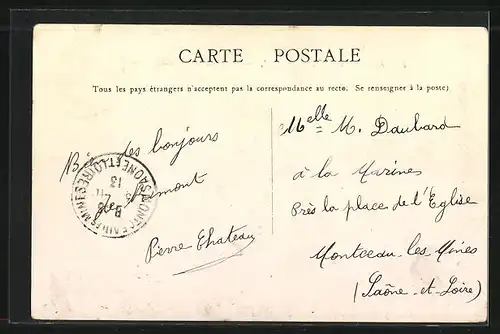 CARTE POSTALE
Tous les pays étrangers n'acceptent pas la correspondance au recto. Se renseigner à la poste)
des bonjours
Pierre Chateau
Melle M. Daubard
à la Marines
Près la place de l'Eglise
Montceau-les-Mines
(Saône-et-Loire)
MONTCEAU-LES-MINES
SAONE-ET-LOIRE
13